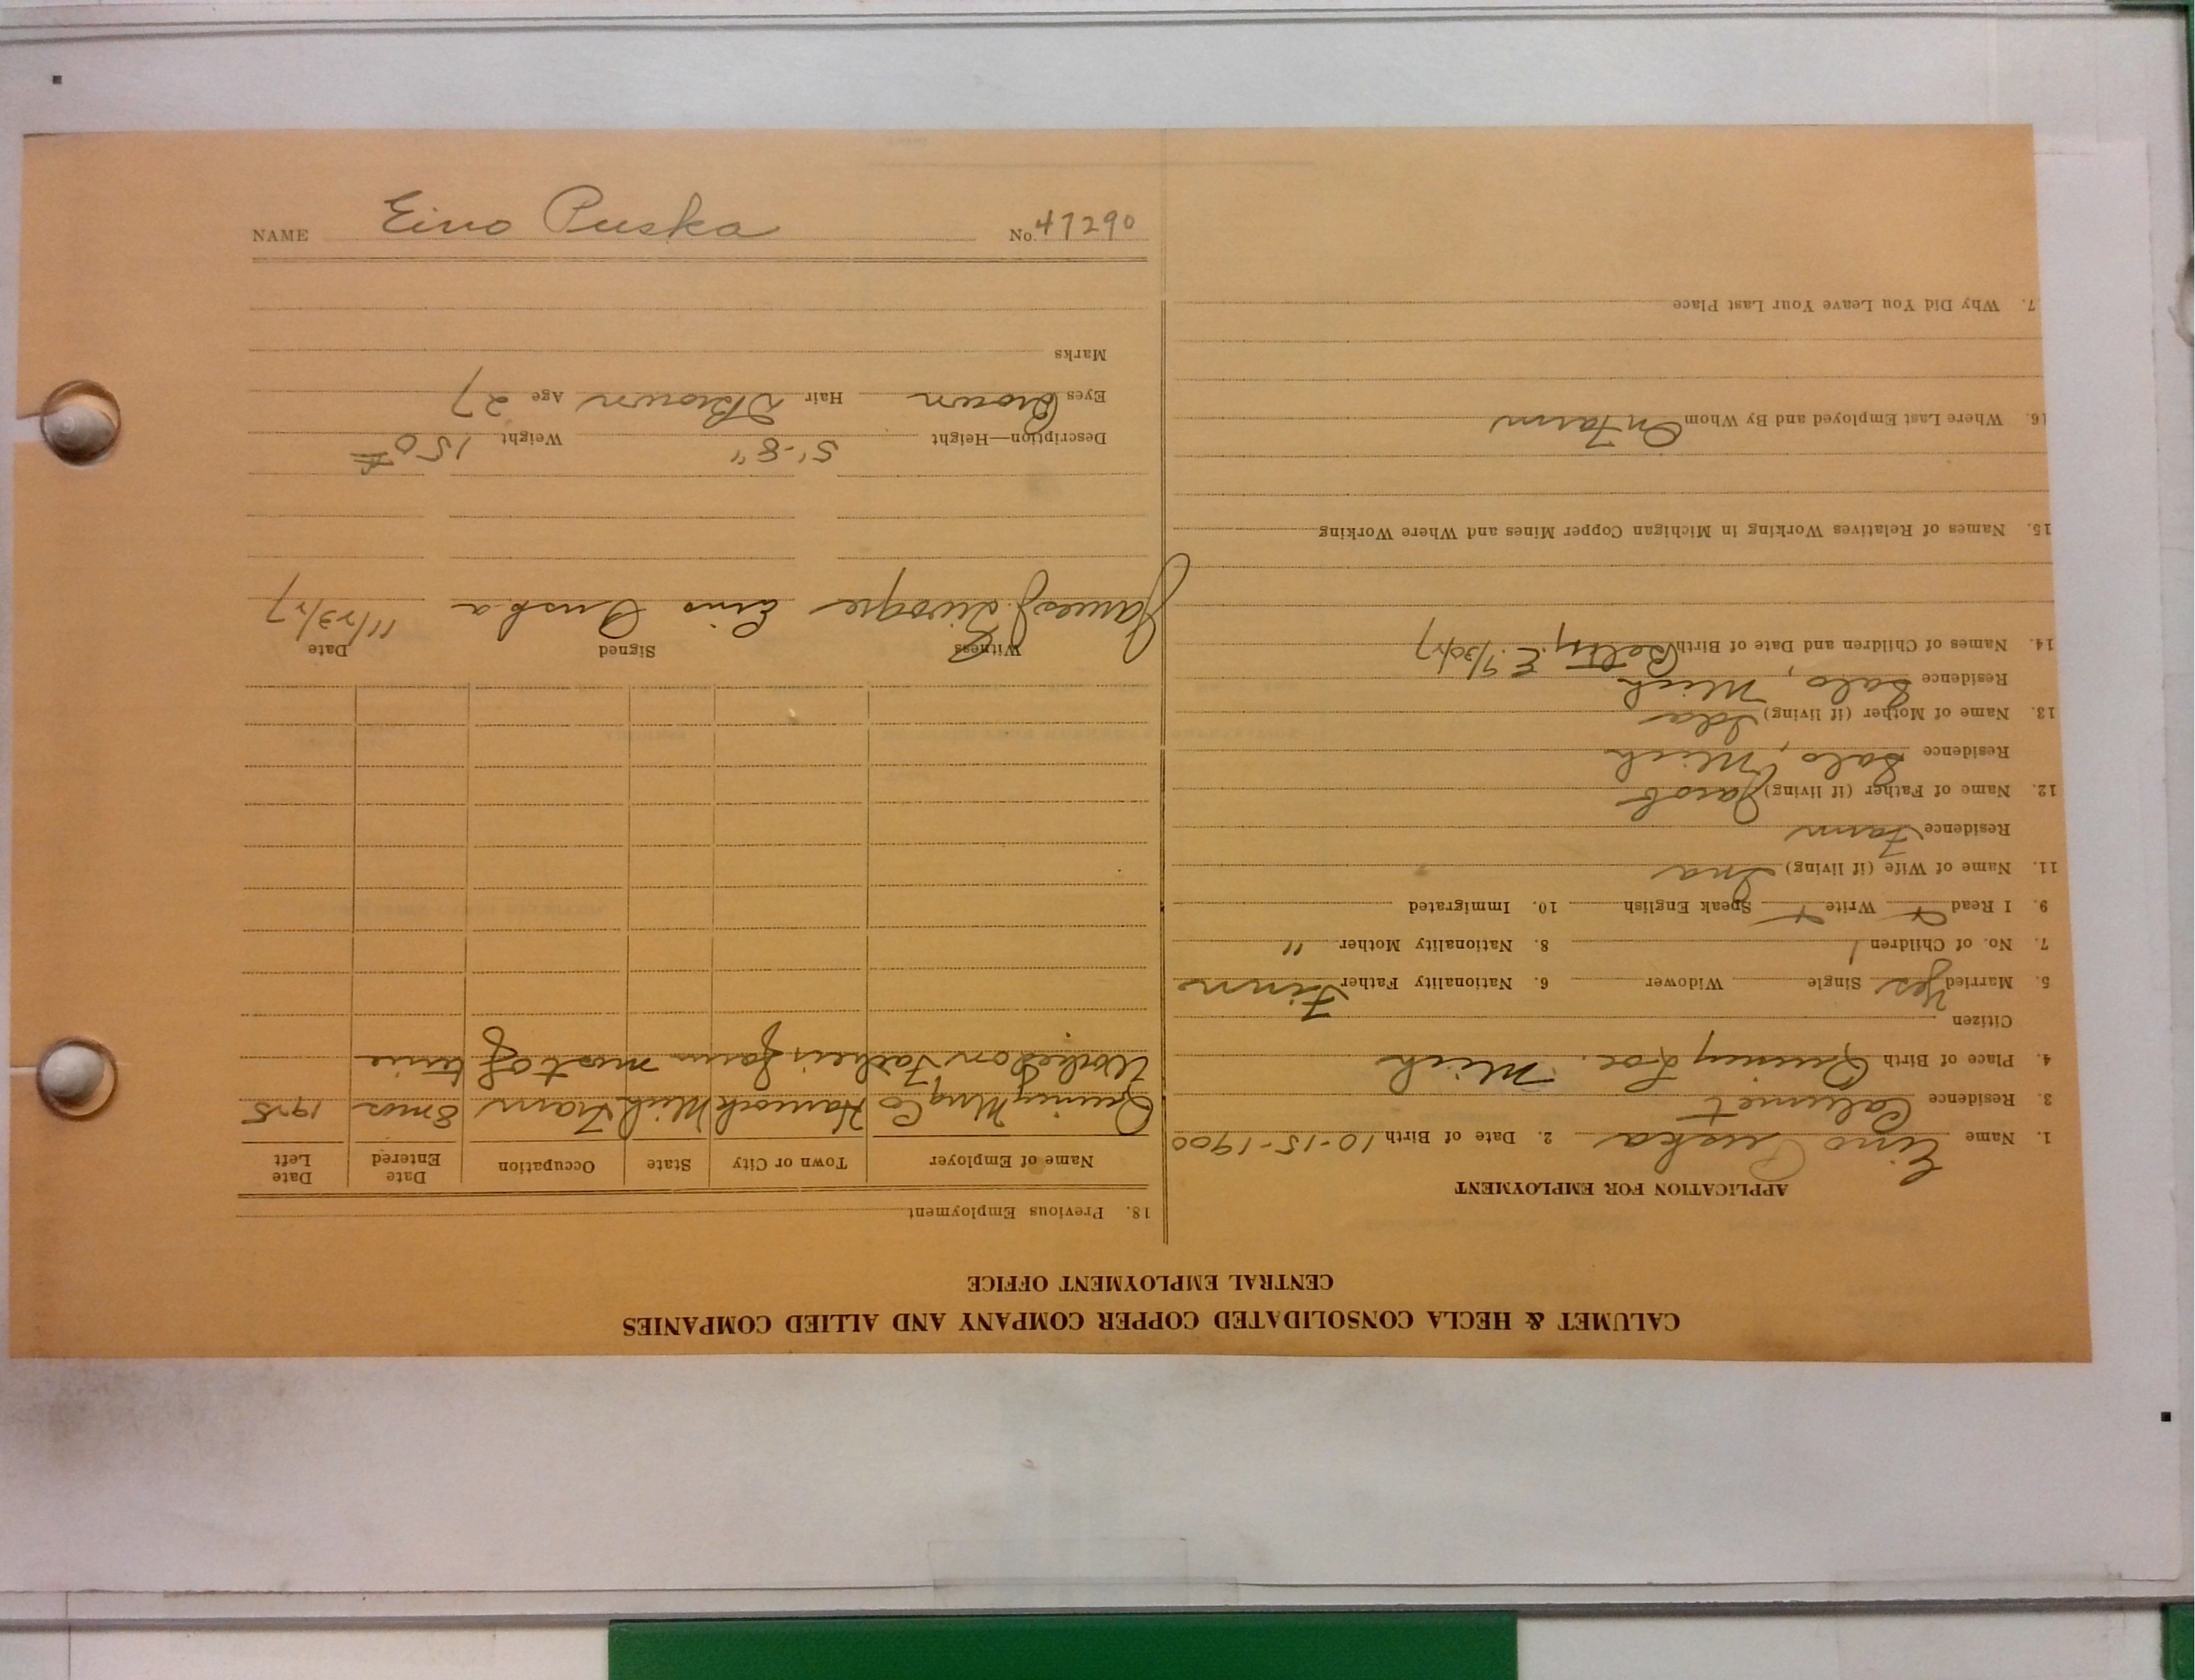 NAME Eino Puska No. 47290
CALUMET & HECLA CONSOLIDATED COPPER COMPANY AND ALLIED COMPANIES
CENTRAL EMPLOYMENT OFFICE
APPLICATION FOR EMPLOYMENT
1. Name Eino Puska 2. Date of Birth 10-15-1900
3. Residence Calumet
4. Place of Birth Quincy Loc. Mich
Citizen
5. Married Yes Single Widower 6. Nationality Father Finn
7. No. of Children 1 8. Nationality Mother "
9. I Read Write Speak English 10. Immigrated
11. Name of Wife (if living) Ina
Residence Farm
12. Name of Father (if living) Jacob
Residence Salo, Mich
13. Name of Mother (if living) Ida
Residence Salo, Mich
14. Names of Children and Date of Birth Betty E. 9/30/27
15. Names of Relatives Working in Michigan Copper Mines and Where Working
16. Where Last Employed and By Whom On Farm
7. Why Did You Leave Your Last Place
18. Previous Employment
Name of Employer Town or City State Occupation Date Entered Date Left
Quincy Mng Co Hancock Mich Tram 8 mos 1925
Worked on Father's farm most of time
Witness Signed Date
James J. Eino Puska 11/23/27
Description—Height 5'-8" Weight 150#
Eyes Brown Hair D Brown Age 27
Marks